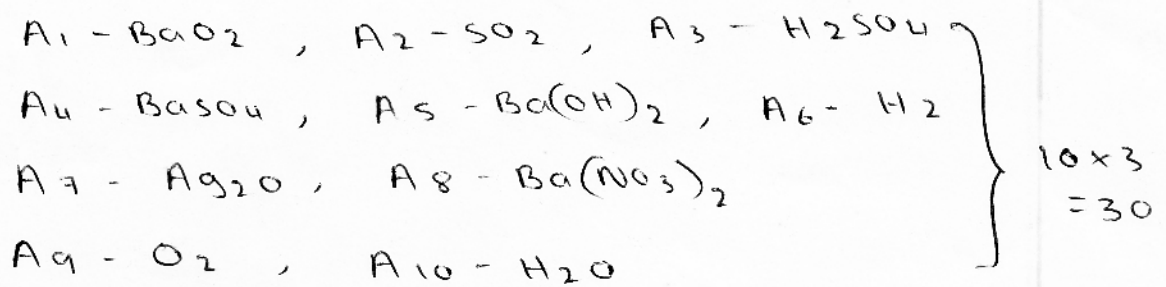 A1 - BaO2 , A2 - SO2 , A3 - H2SO4
A4 - BaSO4 , A5 - Ba(OH)2 , A6 - H2
A7 - Ag2O , A8 - Ba(NO3)2
A9 - O2 , A10 - H2O
10 x 3
= 30